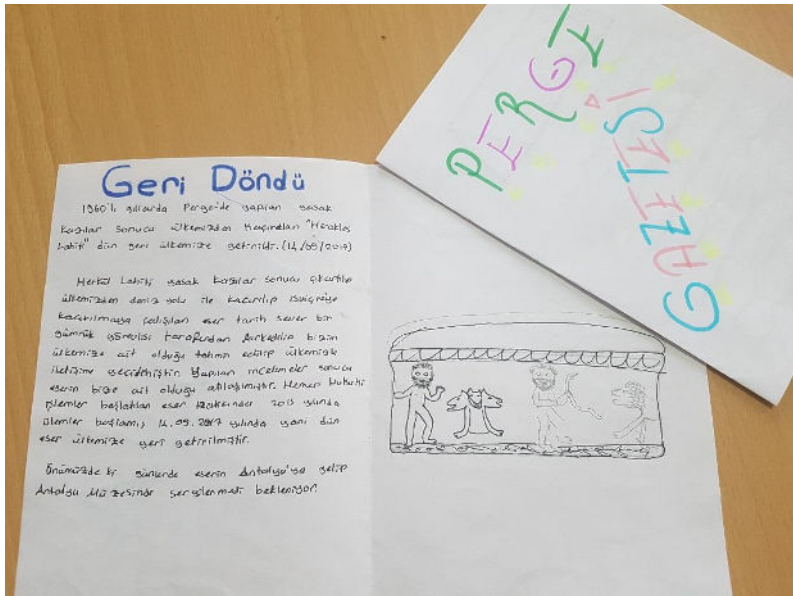 PERGE
GAZETESİ
Geri Döndü
1960'lı yıllarda Perge'de yapılan yasak
kazılar sonucu ülkemizden kaçırılan "Herakles
Lahiti" dün geri ülkemize getirildi. (14/09/2017)
Herkül Lahiti yasak kazılar sonucu çıkartılıp
ülkemizden deniz yolu ile kaçırılıp İsviçreye
kaçırılmaya çalışılan eser tarih sever bir
gümrük görevlisi tarafından farkedilip bizim
ülkemize ait olduğu tahmin edilip ülkemizle
iletişime geçilmiştir. Yapılan incelemeler sonucu
eserin bize ait olduğu anlaşılmıştır. Hemen hukuki
işlemler başlatılan eser hakkında yılında
işlemler başlamış 14.09.2017 yılında yani dün
eser ülkemize geri getirilmiştir.
Önümüzdeki günlerde eserin Antalya'ya gelip
Antalya Müzesinde sergilenmesi bekleniyor.